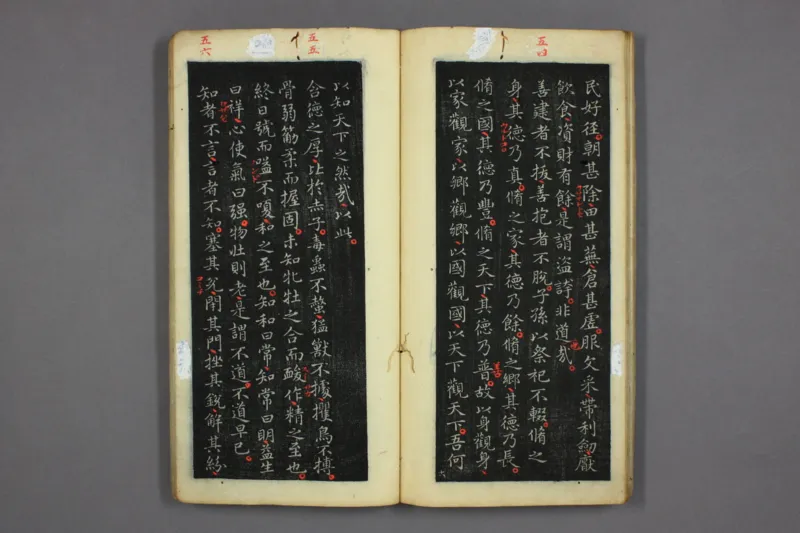 五四
民好徑朝甚除田甚蕪倉甚虛服文采帶利劒厭
飲食資財有餘是謂盜誇非道哉
善建者不拔善抱者不脫子孫以祭祀不輟脩之
身其德乃真脩之家其德乃餘脩之鄉其德乃長
脩之國其德乃豐脩之天下其德乃普故以身觀身
以家觀家以鄉觀鄉以國觀國以天下觀天下吾何
五五
以知天下之然哉以此
含德之厚比於赤子毒蟲不螫猛獸不據攫鳥不搏
骨弱筋柔而握固未知牝牡之合而酸作精之至也
終日號而嗌不嗄和之至也知和曰常知常曰明益生
曰祥心使氣曰强物壯則老是謂不道不道早已
五六
知者不言言者不知塞其兌閉其門挫其銳解其紛